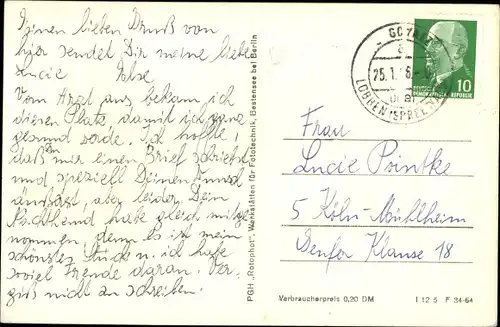 Einen lieben Gruß von
hier sendet Dir meine liebe
Lucie Else
Vom Arzt aus bekam ich
diesen Platz damit ich ganz
gesund werde. Ich hoffte,
daß Du mir einen Brief schriebst
und speziell Deinen Wunsch
äußerst, aber leider. Dein
Nachthemd habe gleich mitge
nommen, denn es ist mein
schönstes Stück u. ich habe
soviel Freude daran. Ver-
giß nicht an schreiben.
PGH „Rotophot", Werkstätten für Fototechnik, Bestensee bei Berlin
GOYATZ
25.1.
LÜBBEN (SPREEW
DEUTSCHE
DEMOKRATISCHE REPUBLIK
10
Frau
Lucie Printke
5 Köln-Mühlheim
Genfer Klause 18
Verbraucherpreis 0,20 DM
I 12 5 F 34-64